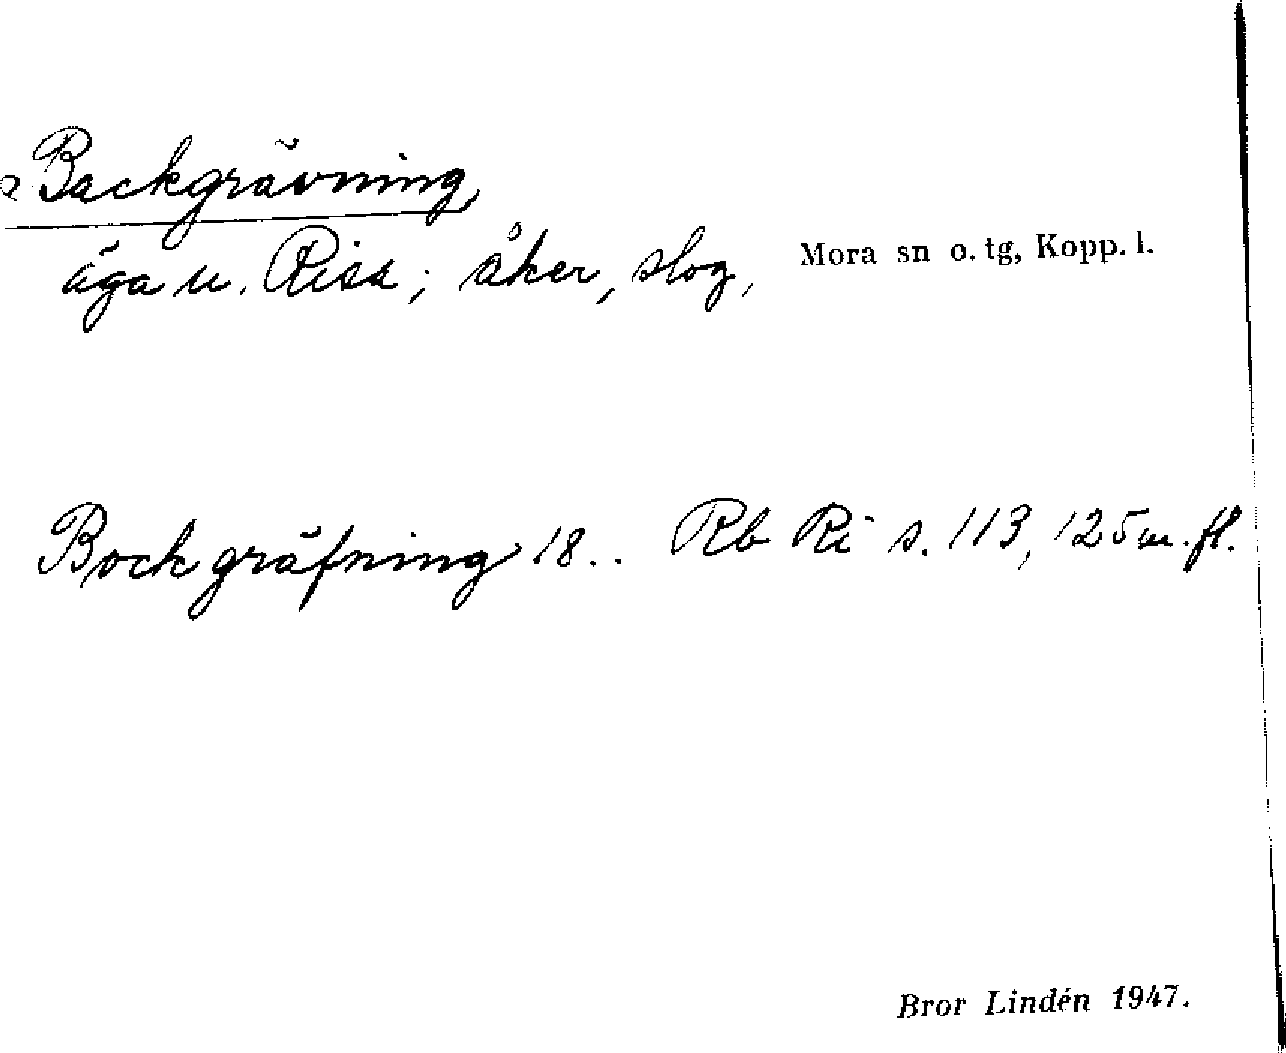 Backgrävning
äga u. Risa; åker, slog,
Mora sn o. tg, Kopp. l.
Bockgräfning 18.. Rb Ri s. 113, 125 m. fl.
Bror Lindén 1947.